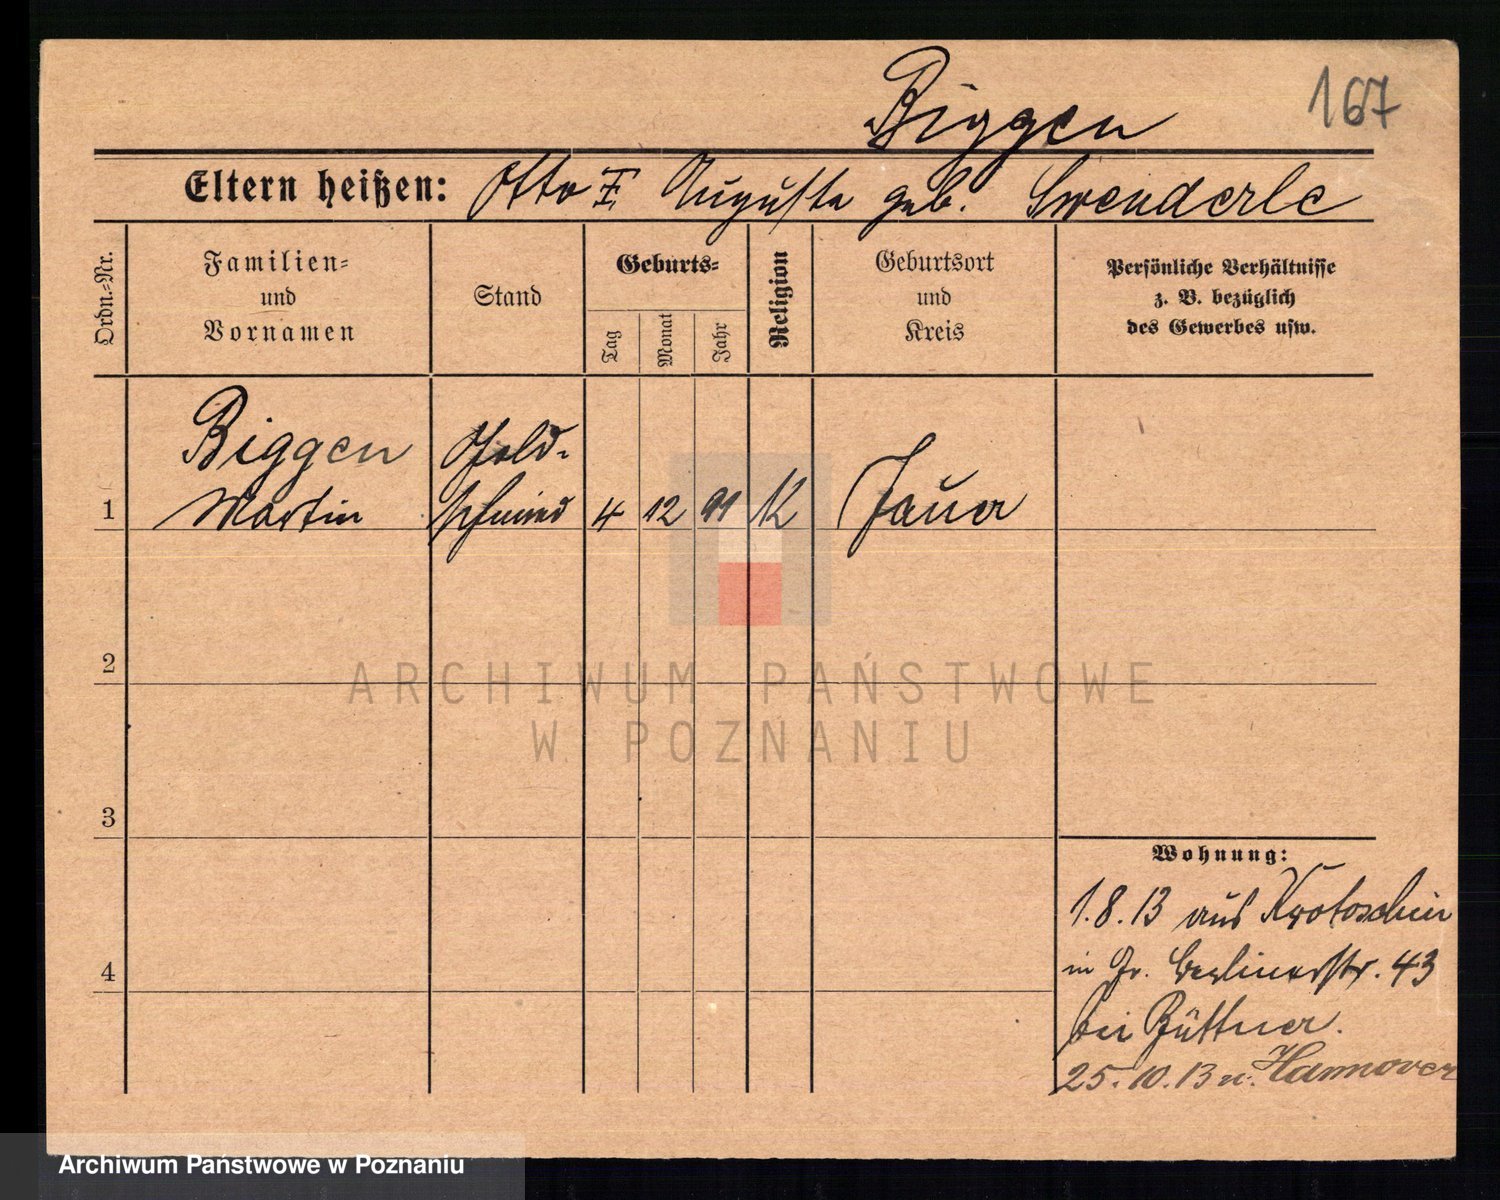 Biggen
167
Eltern heißen: Otto u. Auguste geb. Swenderle
Ordn.=Nr.
Familien=
und
Vornamen
Stand
Geburts=
Tag
Monat
Jahr
Religion
Geburtsort
und
Kreis
Persönliche Verhältnisse
z. B. bezüglich
des Gewerbes usw.
Biggen Gold-
1 Martin schmied 4 12 91 K Jauer
2
3
4
Wohnung:
1.8.13 aus Krotoschin
in Gr. Berlinerstr. 43
bei Büttner.
25.10.13 n. Hannover
ARCHIWUM PAŃSTWOWE
W POZNANIU
Archiwum Państwowe w Poznaniu